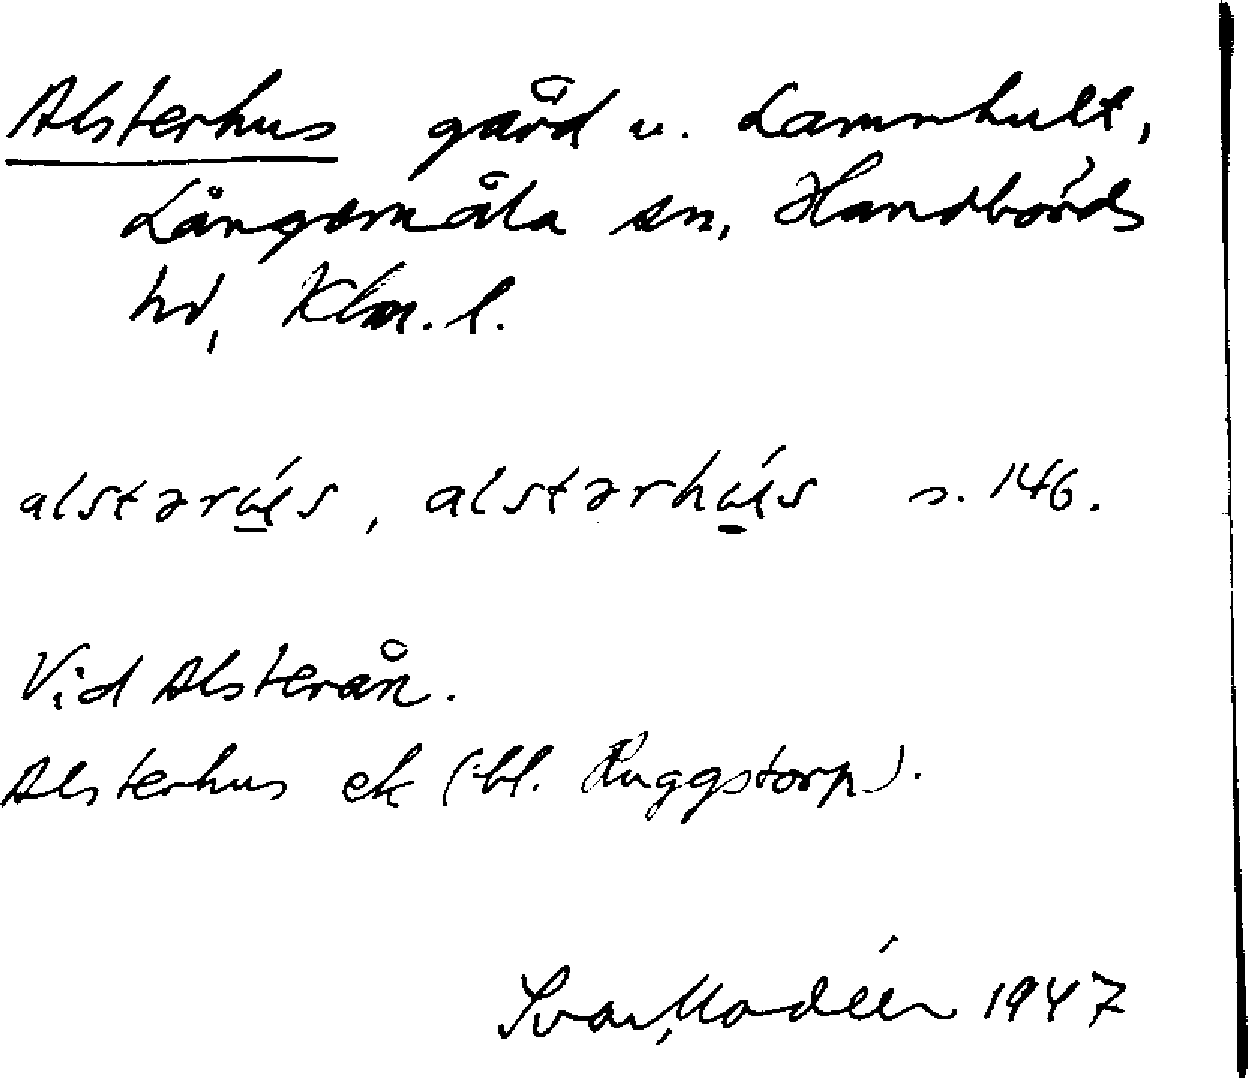 Alsterhus gård u. Lammhult,
Långemåla sn, Handbörds
hd, Klm. l.
alstərús, alstərhús s. 146.
Vid Alsterån.
Alsterhus ek (bl. Ruggstorp).
Ivar Modéer 1947